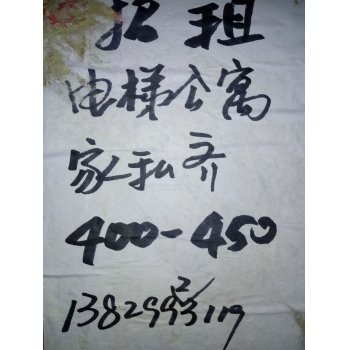 招租
电梯公寓
家私齐
400-450